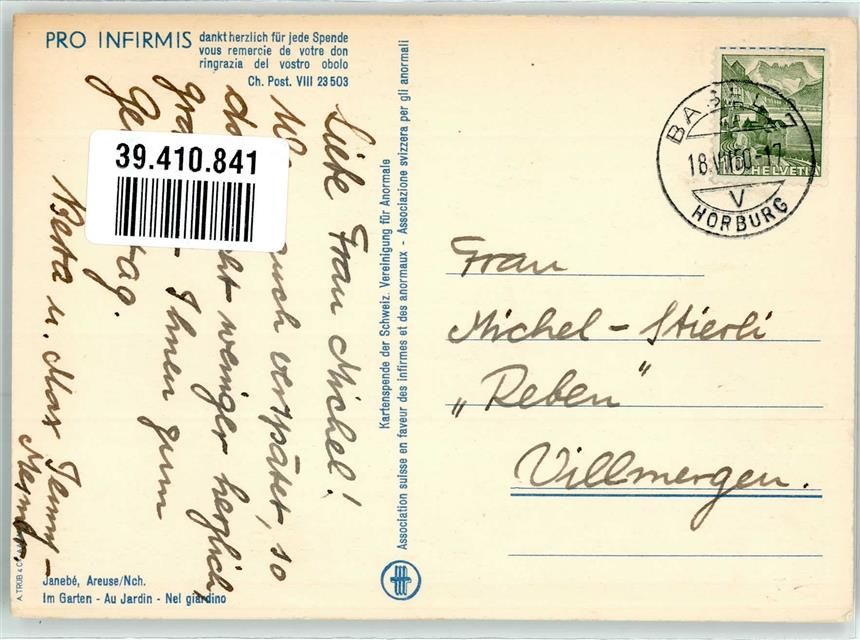 PRO INFIRMIS
dankt herzlich für jede Spende
vous remercie de votre don
ringrazia del vostro obolo
Ch. Post. VIII 23503
39.410.841
Liebe Frau Michel!
auch verspätet, so
weniger herzlich,
Ihnen zum
tag.
Berta u. Max Jenny-
Kartenspende der Schweiz. Vereinigung für Anormale
Association suisse en faveur des infirmes et des anormaux - Associazione svizzera per gli anormali
HELVETIA
BASEL 7
18.VII60-17
V
HORBURG
Frau
Michel-Stierli
„Reben"
Villmergen.
Janebé, Areuse/Nch.
Im Garten - Au Jardin - Nel giardino
A. TRÜB & C